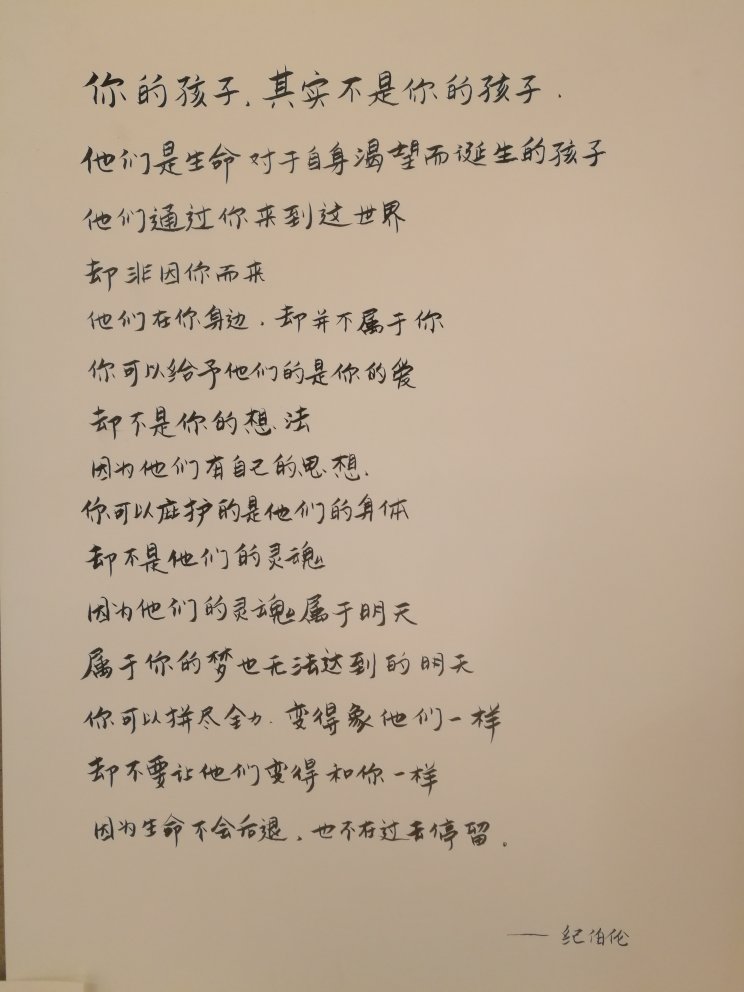 你的孩子.其实不是你的孩子.
他们是生命对于自身渴望而诞生的孩子
他们通过你来到这世界
却非因你而来
他们在你身边.却并不属于你
你可以给予他们的是你的爱
却不是你的想法
因为他们有自己的思想.
你可以庇护的是他们的身体
却不是他们的灵魂
因为他们的灵魂属于明天
属于你的梦也无法达到的明天
你可以拼尽全力.变得象他们一样
却不要让他们变得和你一样
因为生命不会后退.也不在过去停留。
——纪伯伦